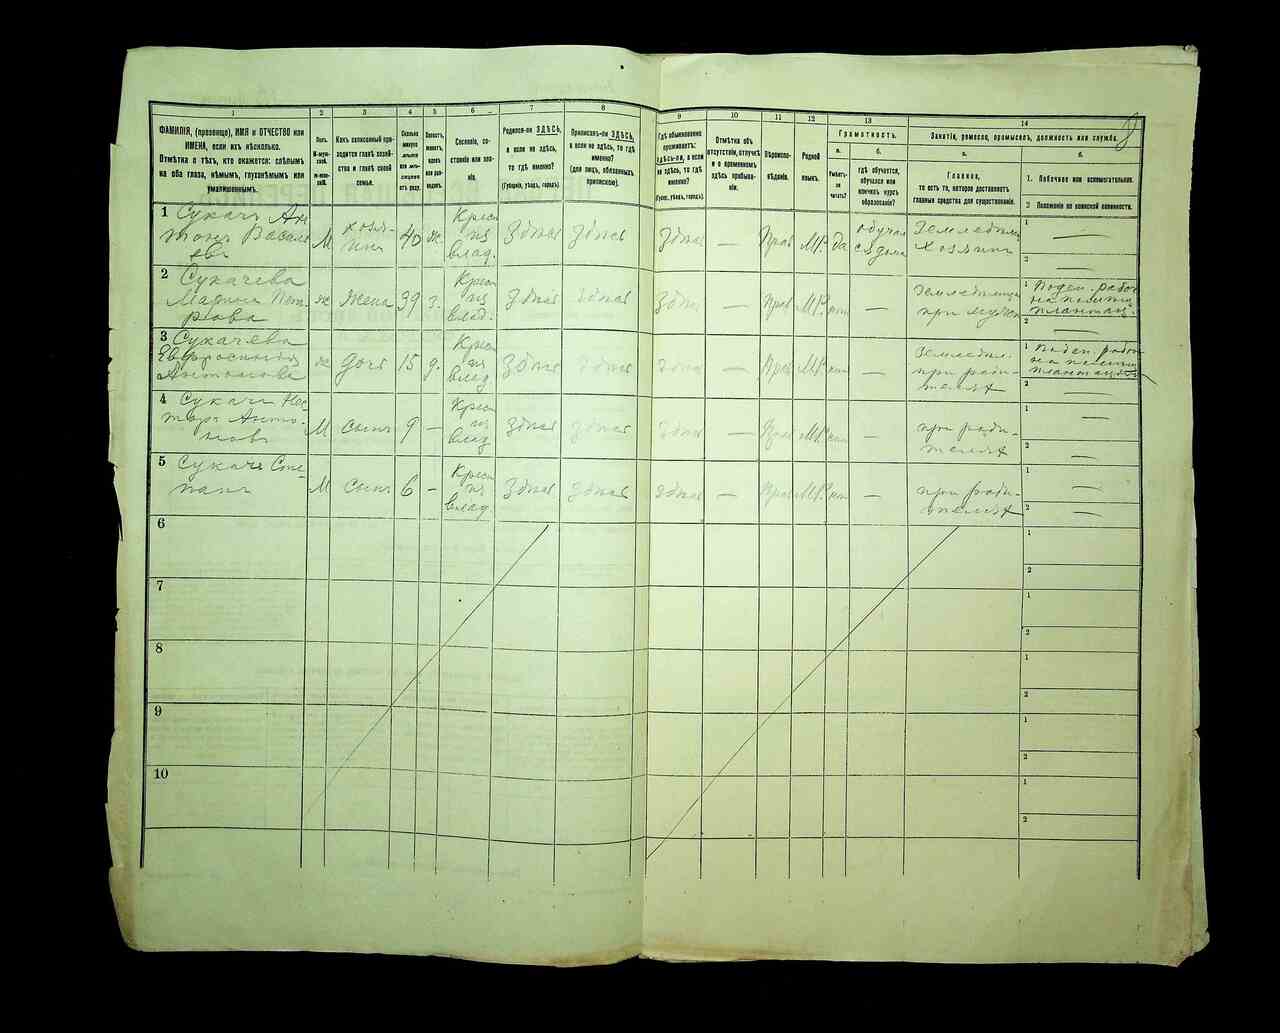 8
1 2 3 4 5 6 7 8 9 10 11 12 13 14
ФАМИЛІЯ, (прозвище), ИМЯ и ОТЧЕСТВО или
ИМЕНА, если ихъ нѣсколько.
Отмѣтка о тѣхъ, кто окажется: слѣпымъ
на оба глаза, нѣмымъ, глухонѣмымъ или
умалишеннымъ.
Полъ.
М-мужской.
Ж-женскій.
Какъ записанный приходится главѣ хозяйства и главѣ своей
семьи.
Сколько
минуло
лѣтъ
Сословіе, состояніе или званіе.
Родился-ли ЗДѢСЬ,
а если не здѣсь,
то гдѣ именно?
(Губернія, уѣздъ, городъ).
Приписанъ-ли ЗДѢСЬ,
а если не здѣсь, то гдѣ
именно?
(для лицъ, обязанныхъ
припискою).
Гдѣ обыкновенно
проживаетъ:
здѣсь-ли, а если
не здѣсь, то гдѣ
именно?
(Губ., уѣздъ, городъ).
Отмѣтка объ
отсутствіи, отлучкѣ
и о временномъ
здѣсь пребываніи.
Вѣроисповѣданіе.
Родной
языкъ.
Грамотность.
а. б.
Умѣетъ-ли
читать?
гдѣ обучается,
обучался или
кончилъ курсъ
образованія?
Занятіе, ремесло, промыселъ, должность или служба.
а. б.
Главное,
то есть то, которое доставляетъ
главныя средства для существованія.
1. Побочное или вспомогательное.
2 Положеніе по воинской повинности.
1 Сукачъ Антонъ Васильевъ М хозяинъ 40 ж. Крест. изъ влад. Здѣсь Здѣсь Здѣсь — Прав М.Р. да обучался дома Земледѣлецъ хозяинъ 1 — 2 —
2 Сукачева Марина Петрова ж жена 39 з. Крест. изъ влад. Здѣсь Здѣсь Здѣсь — Прав М.Р. нѣт — при мужѣ 1 Поден. работ. на плантац. 2 —
3 Сукачева Евфросинія Антонова ж дочь 15 д. Крест. изъ влад Здѣсь Здѣсь Здѣсь — Прав М.Р. нѣт — при родителях 1 Поден. работ. на 2 —
4 Сукачъ Несторъ Антоновъ М сынъ 9 — Крест. изъ влад Здѣсь Здѣсь Здѣсь — Прав М.Р. нѣт — при родителях 1 — 2 —
5 Сукачъ Степанъ М сынъ 6 — Крест. изъ влад. Здѣсь Здѣсь Здѣсь — Прав М.Р. нѣт — при родителях 1 — 2 —
6 1
2
7 1
2
8 1
2
9 1
2
10 1
2